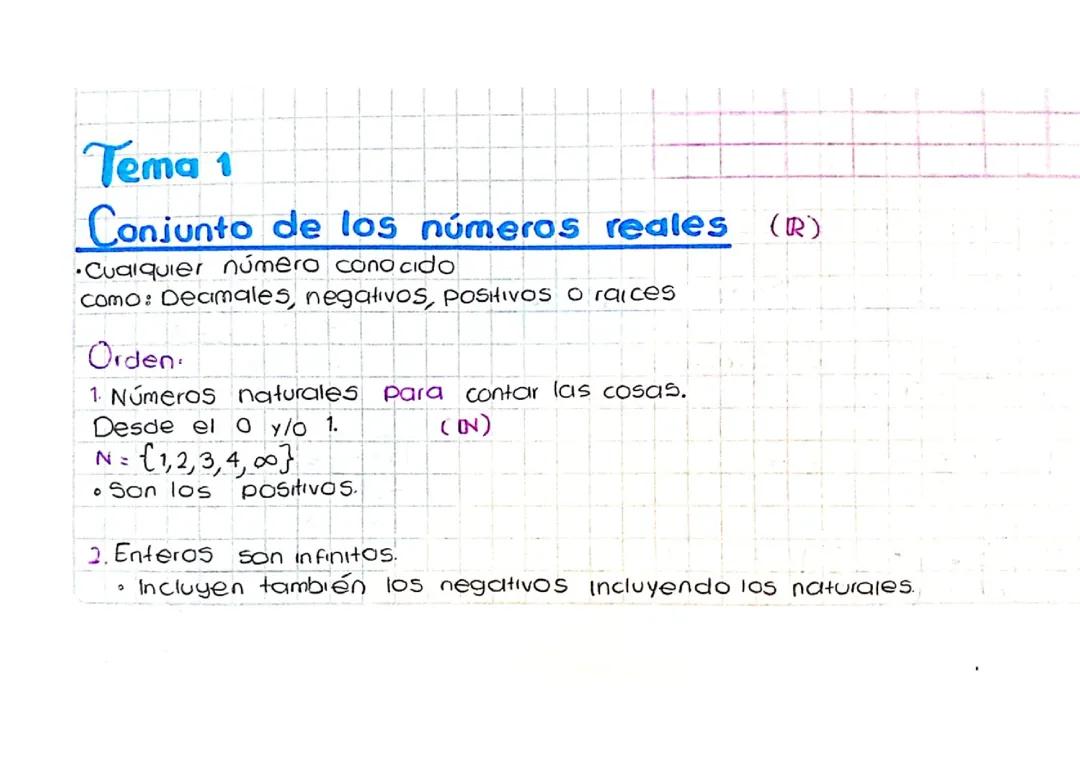 Tema 1
Conjunto de los números reales (ℝ)
•Cualquier número conocido
como: Decimales, negativos, positivos o raíces
Orden:
1. Números naturales para contar las cosas.
Desde el 0 y/o 1. (ℕ)
N = {1,2,3,4,∞}
• Son los positivos.
2. Enteros son infinitos.
• Incluyen también los negativos incluyendo los naturales.